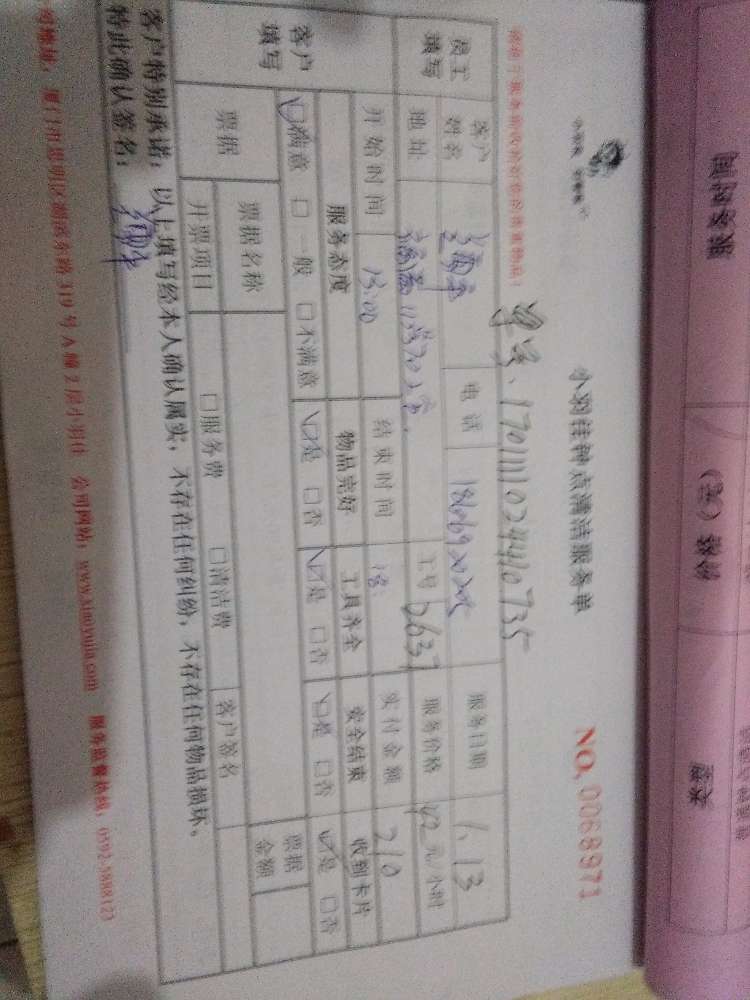 小羽佳钟点清洁服务单
NO. 0068971
单号:170111024410735
员工填写
客户姓名
电话
服务日期 1.13
地址
工号 0637
服务价格 42元/小时
开始时间 13:00
结束时间 18
实付金额 210
客户填写
服务态度 物品完好 工具齐全 安全结束 收到卡片
☑满意 □一般 □不满意 ☑是 □否 ☑是 □否 ☑是 □否 ☑是 □否
票据
票据名称
票据金额
开票项目 □服务费 □清洁费 客户签名
客户特别承诺:以上填写经本人确认属实,不存在任何纠纷,不存在任何物品损坏。
特此确认签名:
司地址:厦门市思明区湖滨东路319号A幢2层小羽佳 公司网站:www.xiaoyujia.com 服务监督热线:0592-5888123
服务时间 价格(元) 类型